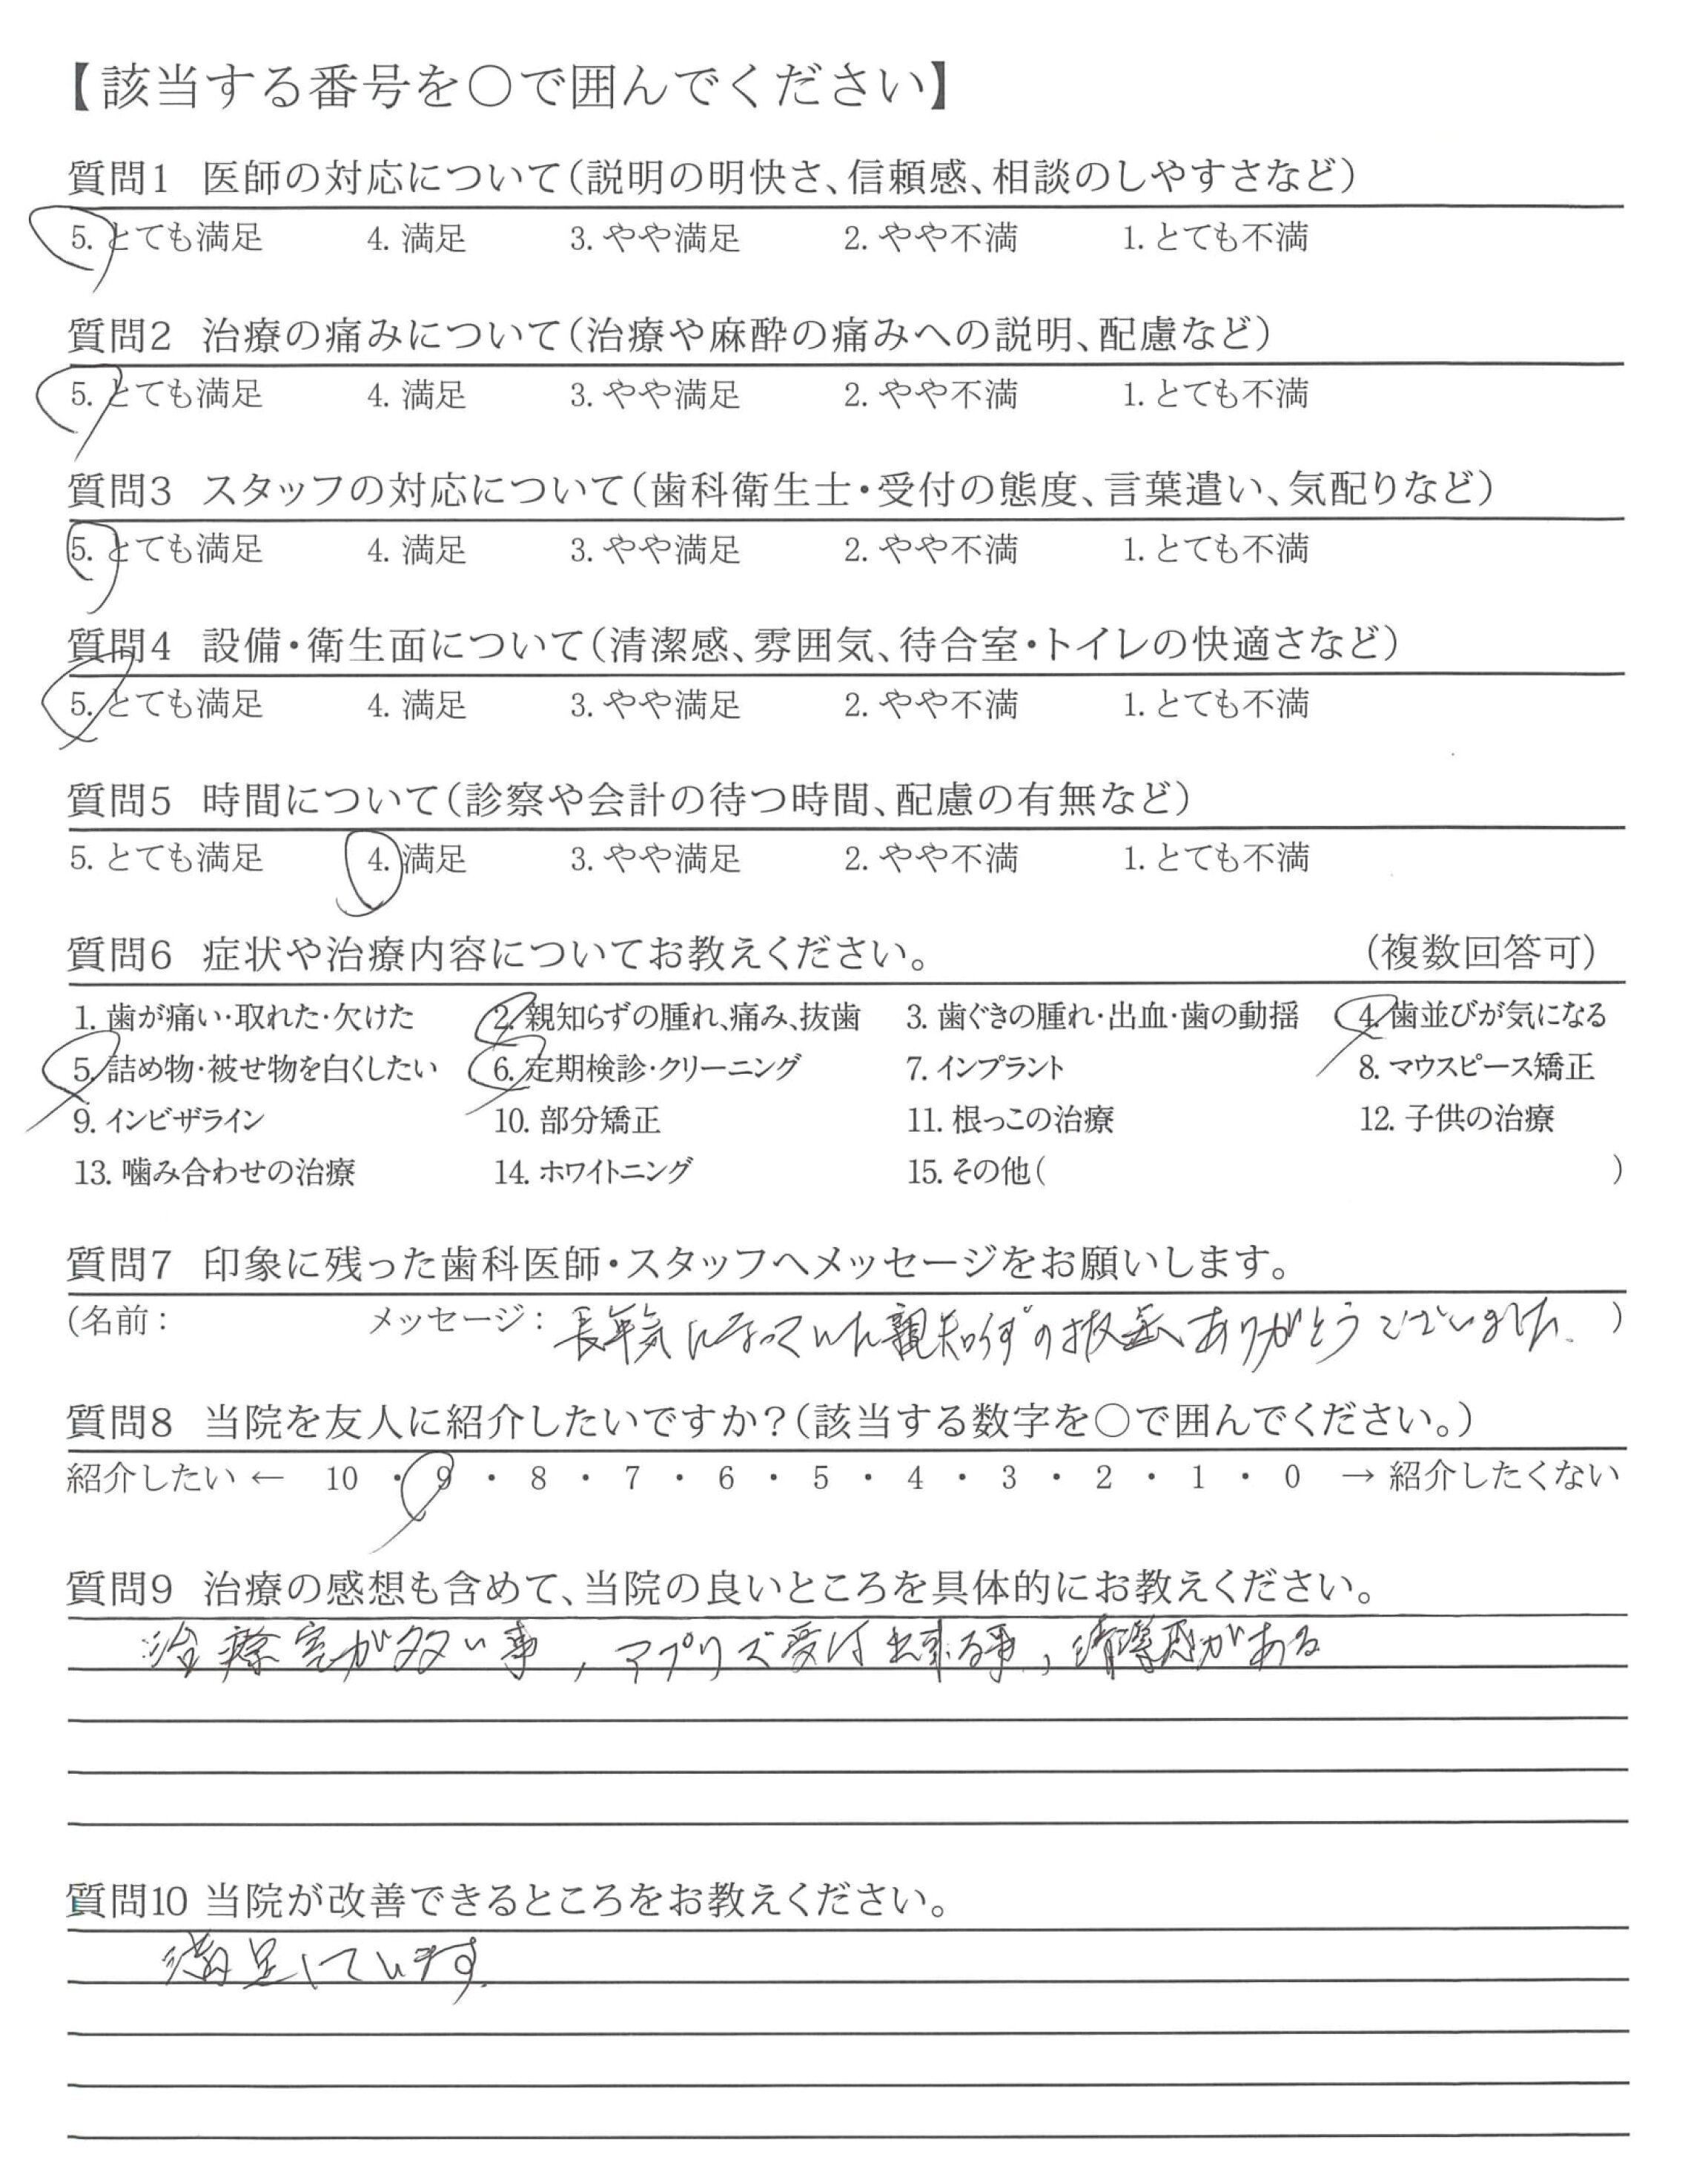 【該当する番号を○で囲んでください】
質問1 医師の対応について(説明の明快さ、信頼感、相談のしやすさなど)
5. とても満足 4. 満足 3. やや満足 2. やや不満 1. とても不満
質問2 治療の痛みについて(治療や麻酔の痛みへの説明、配慮など)
5. とても満足 4. 満足 3. やや満足 2. やや不満 1. とても不満
質問3 スタッフの対応について(歯科衛生士・受付の態度、言葉遣い、気配りなど)
5. とても満足 4. 満足 3. やや満足 2. やや不満 1. とても不満
質問4 設備・衛生面について(清潔感、雰囲気、待合室・トイレの快適さなど)
5. とても満足 4. 満足 3. やや満足 2. やや不満 1. とても不満
質問5 時間について(診察や会計の待つ時間、配慮の有無など)
5. とても満足 4. 満足 3. やや満足 2. やや不満 1. とても不満
質問6 症状や治療内容についてお教えください。 (複数回答可)
1. 歯が痛い・取れた・欠けた 2. 親知らずの腫れ、痛み、抜歯 3. 歯ぐきの腫れ・出血・歯の動揺 4. 歯並びが気になる
5. 詰め物・被せ物を白くしたい 6. 定期検診・クリーニング 7. インプラント 8. マウスピース矯正
9. インビザライン 10. 部分矯正 11. 根っこの治療 12. 子供の治療
13. 噛み合わせの治療 14. ホワイトニング 15. その他( )
質問7 印象に残った歯科医師・スタッフへメッセージをお願いします。
(名前: メッセージ: 長年気になっていた親知らずの抜歯、ありがとうございました。 )
質問8 当院を友人に紹介したいですか?(該当する数字を○で囲んでください。)
紹介したい ← 10 ・ 9 ・ 8 ・ 7 ・ 6 ・ 5 ・ 4 ・ 3 ・ 2 ・ 1 ・ 0 → 紹介したくない
質問9 治療の感想も含めて、当院の良いところを具体的にお教えください。
治療室が多い事、アプリで受付出来る事、清潔感がある
質問10 当院が改善できるところをお教えください。
満足しています。